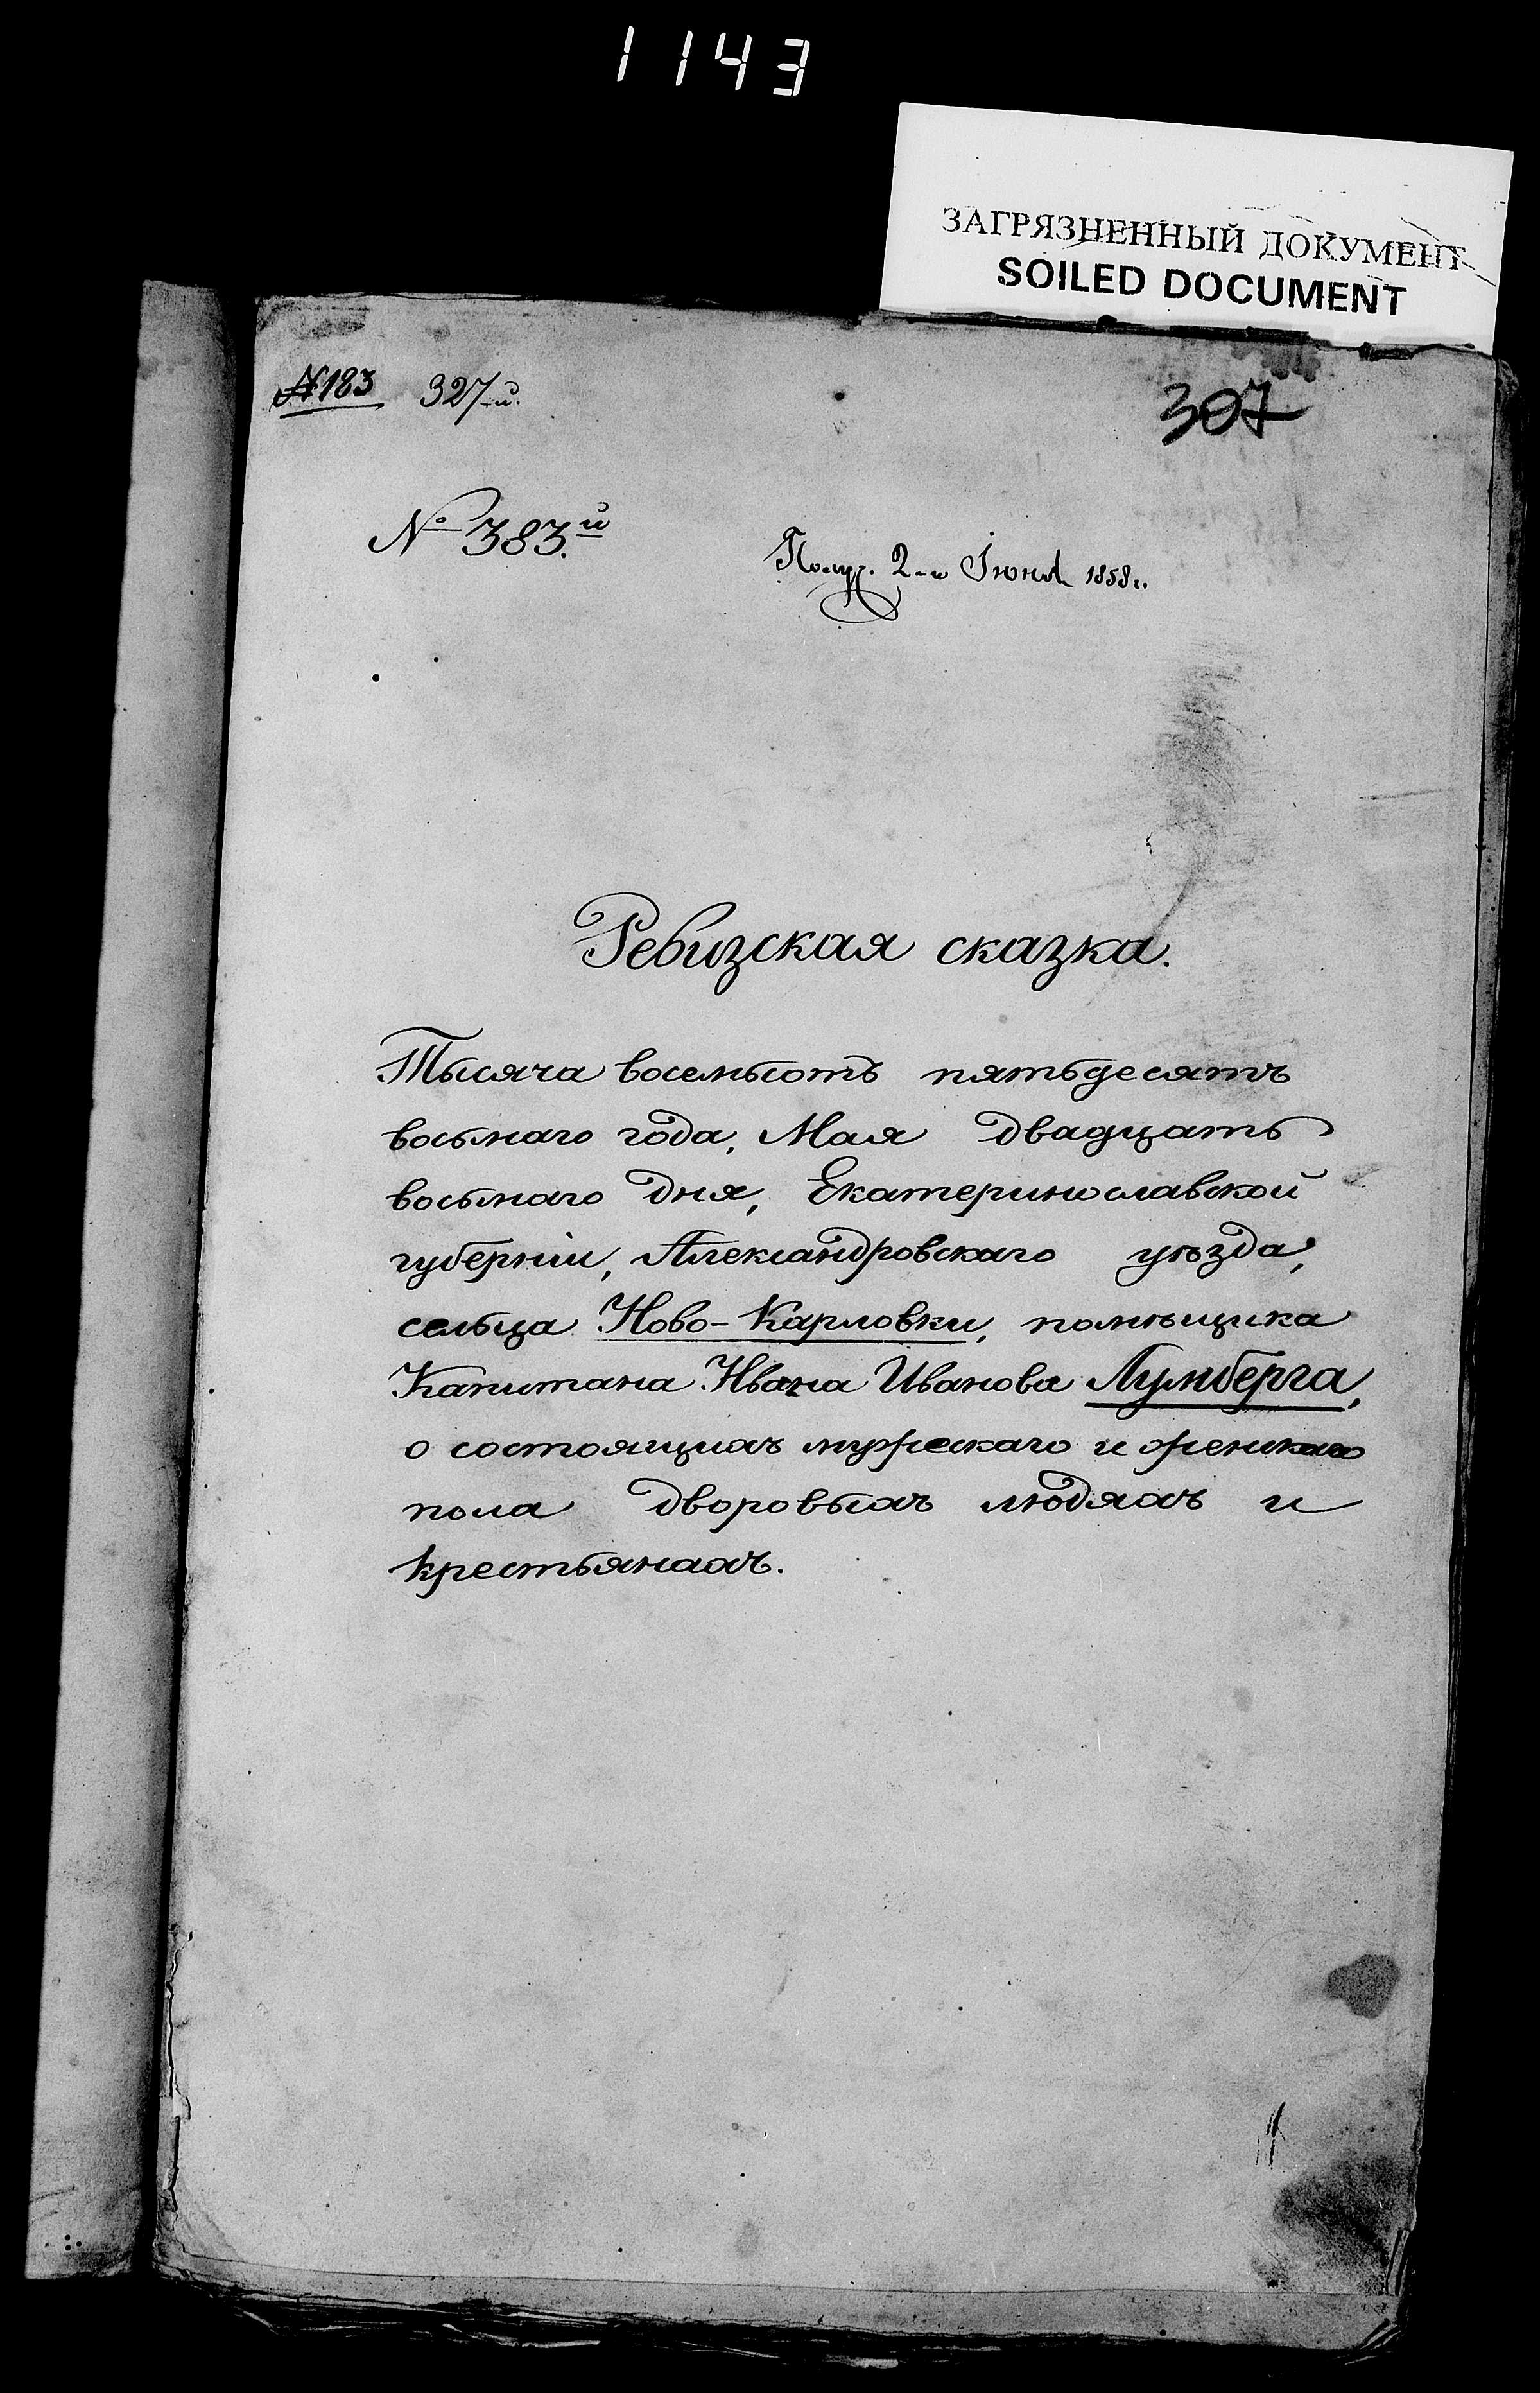 1143
ЗАГРЯЗНЕННЫЙ ДОКУМЕНТ
SOILED DOCUMENT
№183 327-й.
307
№ 383.й
Получ. 2-го Іюня 1858 г.
Ревизская сказка.
Тысяча восемьсотъ пятьдесятъ
восьмаго года, Мая двадцать
восьмаго дня, Екатеринославской
губерніи, Александровскаго уѣзда,
сельца Ново-Карловки, помѣщика
Капитана Ивана Иванова Лумберга,
о состоящихъ мужескаго и женскаго
пола дворовыхъ людяхъ и
крестьянахъ.